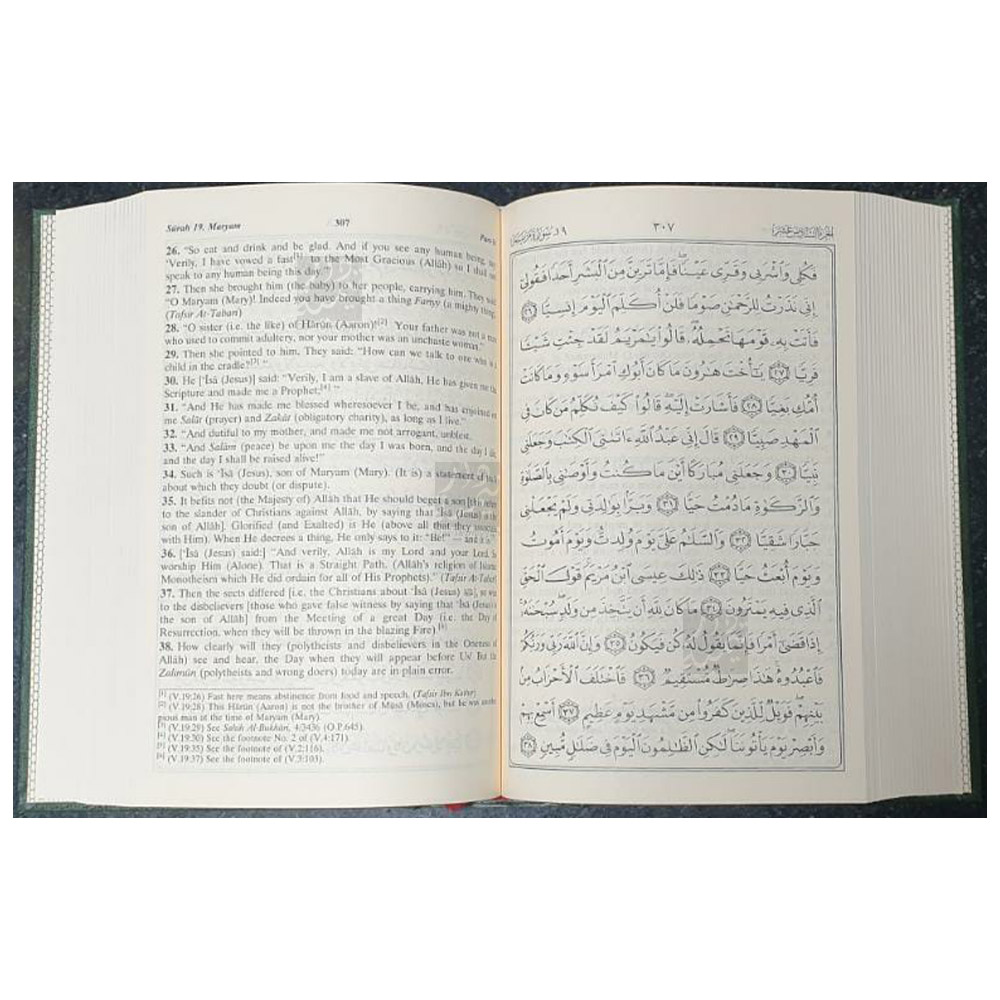 Sûrah 19. Maryam 307 Part
26. "So eat and drink and be glad. And if you see any human being, say:
'Verily, I have vowed a fast[1] to the Most Gracious (Allâh) so I shall not
speak to any human being this day.'"
27. Then she brought him (the baby) to her people, carrying him. They said:
"O Maryam (Mary)! Indeed you have brought a thing Fariyy (a mighty thing)
(Tafsir At-Tabari)
28. "O sister (i.e. the like) of Hârûn (Aaron)![2] Your father was not a man
who used to commit adultery, nor your mother was an unchaste woman."
29. Then she pointed to him. They said: "How can we talk to one who is a
child in the cradle?[3]"
30. He ['Îsâ (Jesus)] said: "Verily, I am a slave of Allâh, He has given me the
Scripture and made me a Prophet;[4]"
31. "And He has made me blessed wheresoever I be, and has enjoined on
me Salât (prayer) and Zakât (obligatory charity), as long as I live."
32. "And dutiful to my mother, and made me not arrogant, unblest.
33. "And Salâm (peace) be upon me the day I was born, and the day I die,
and the day I shall be raised alive!"
34. Such is 'Îsâ (Jesus), son of Maryam (Mary). (It is) a statement of truth
about which they doubt (or dispute).
35. It befits not (the Majesty of) Allâh that He should beget a son [this refers
to the slander of Christians against Allâh, by saying that 'Îsâ (Jesus) is the
son of Allâh]. Glorified (and Exalted) is He (above all that they associate
with Him). When He decrees a thing, He only says to it: "Be!" — and it is[5]
36. ['Îsâ (Jesus) said:] "And verily, Allâh is my Lord and your Lord. So
worship Him (Alone). That is a Straight Path. (Allâh's religion of Islamic
Monotheism which He did ordain for all of His Prophets)." (Tafsir At-Tabari)
37. Then the sects differed [i.e. the Christians about 'Îsâ (Jesus)], so woe
to the disbelievers [those who gave false witness by saying that 'Îsâ (Jesus) is
the son of Allâh] from the Meeting of a great Day (i.e. the Day of
Resurrection, when they will be thrown in the blazing Fire).[6]
38. How clearly will they (polytheists and disbelievers in the Oneness of
Allâh) see and hear, the Day when they will appear before Us! But the
Zâlimûn (polytheists and wrong doers) today are in plain error.
[1] (V.19:26) Fast here means abstinence from food and speech. (Tafsir Ibn Kathir)
[2] (V.19:28) This Hârûn (Aaron) is not the brother of Mûsâ (Moses), but he was another
pious man at the time of Maryam (Mary).
[3] (V.19:29) See Sahih Al-Bukhâri, 4/3436 (O.P.645).
[4] (V.19:30) See the footnote No. 2 of (V.4:171).
[5] (V.19:35) See the footnote of (V.2:116).
[6] (V.19:37) See the footnote of (V.3:103).
الجزء السادس عشر ٣٠٧ ١٩- سورة مريم
فَكُلِى وَٱشْرَبِى وَقَرِّى عَيْنًا فَإِمَّا تَرَيِنَّ مِنَ ٱلْبَشَرِ أَحَدًا فَقُولِىٓ
إِنِّى نَذَرْتُ لِلرَّحْمَـٰنِ صَوْمًا فَلَنْ أُكَلِّمَ ٱلْيَوْمَ إِنسِيًّا ٢٦
فَأَتَتْ بِهِۦ قَوْمَهَا تَحْمِلُهُۥ قَالُوا۟ يَـٰمَرْيَمُ لَقَدْ جِئْتِ شَيْـًٔا
فَرِيًّا ٢٧ يَـٰٓأُخْتَ هَـٰرُونَ مَا كَانَ أَبُوكِ ٱمْرَأَ سَوْءٍ وَمَا كَانَتْ
أُمُّكِ بَغِيًّا ٢٨ فَأَشَارَتْ إِلَيْهِ قَالُوا۟ كَيْفَ نُكَلِّمُ مَن كَانَ فِى
ٱلْمَهْدِ صَبِيًّا ٢٩ قَالَ إِنِّى عَبْدُ ٱللَّهِ ءَاتَىٰنِىَ ٱلْكِتَـٰبَ وَجَعَلَنِى
نَبِيًّا ٣٠ وَجَعَلَنِى مُبَارَكًا أَيْنَ مَا كُنتُ وَأَوْصَـٰنِى بِٱلصَّلَوٰةِ
وَٱلزَّكَوٰةِ مَا دُمْتُ حَيًّا ٣١ وَبَرًّۢا بِوَٰلِدَتِى وَلَمْ يَجْعَلْنِى
جَبَّارًا شَقِيًّا ٣٢ وَٱلسَّلَـٰمُ عَلَىَّ يَوْمَ وُلِدتُّ وَيَوْمَ أَمُوتُ
وَيَوْمَ أُبْعَثُ حَيًّا ٣٣ ذَٰلِكَ عِيسَى ٱبْنُ مَرْيَمَ قَوْلَ ٱلْحَقِّ
ٱلَّذِى فِيهِ يَمْتَرُونَ ٣٤ مَا كَانَ لِلَّهِ أَن يَتَّخِذَ مِن وَلَدٍ سُبْحَـٰنَهُۥٓ
إِذَا قَضَىٰٓ أَمْرًا فَإِنَّمَا يَقُولُ لَهُۥ كُن فَيَكُونُ ٣٥ وَإِنَّ ٱللَّهَ رَبِّى وَرَبُّكُمْ
فَٱعْبُدُوهُ هَـٰذَا صِرَٰطٌ مُّسْتَقِيمٌ ٣٦ فَٱخْتَلَفَ ٱلْأَحْزَابُ مِنۢ
بَيْنِهِمْ فَوَيْلٌ لِّلَّذِينَ كَفَرُوا۟ مِن مَّشْهَدِ يَوْمٍ عَظِيمٍ ٣٧ أَسْمِعْ بِهِمْ
وَأَبْصِرْ يَوْمَ يَأْتُونَنَا لَـٰكِنِ ٱلظَّـٰلِمُونَ ٱلْيَوْمَ فِى ضَلَـٰلٍ مُّبِينٍ ٣٨